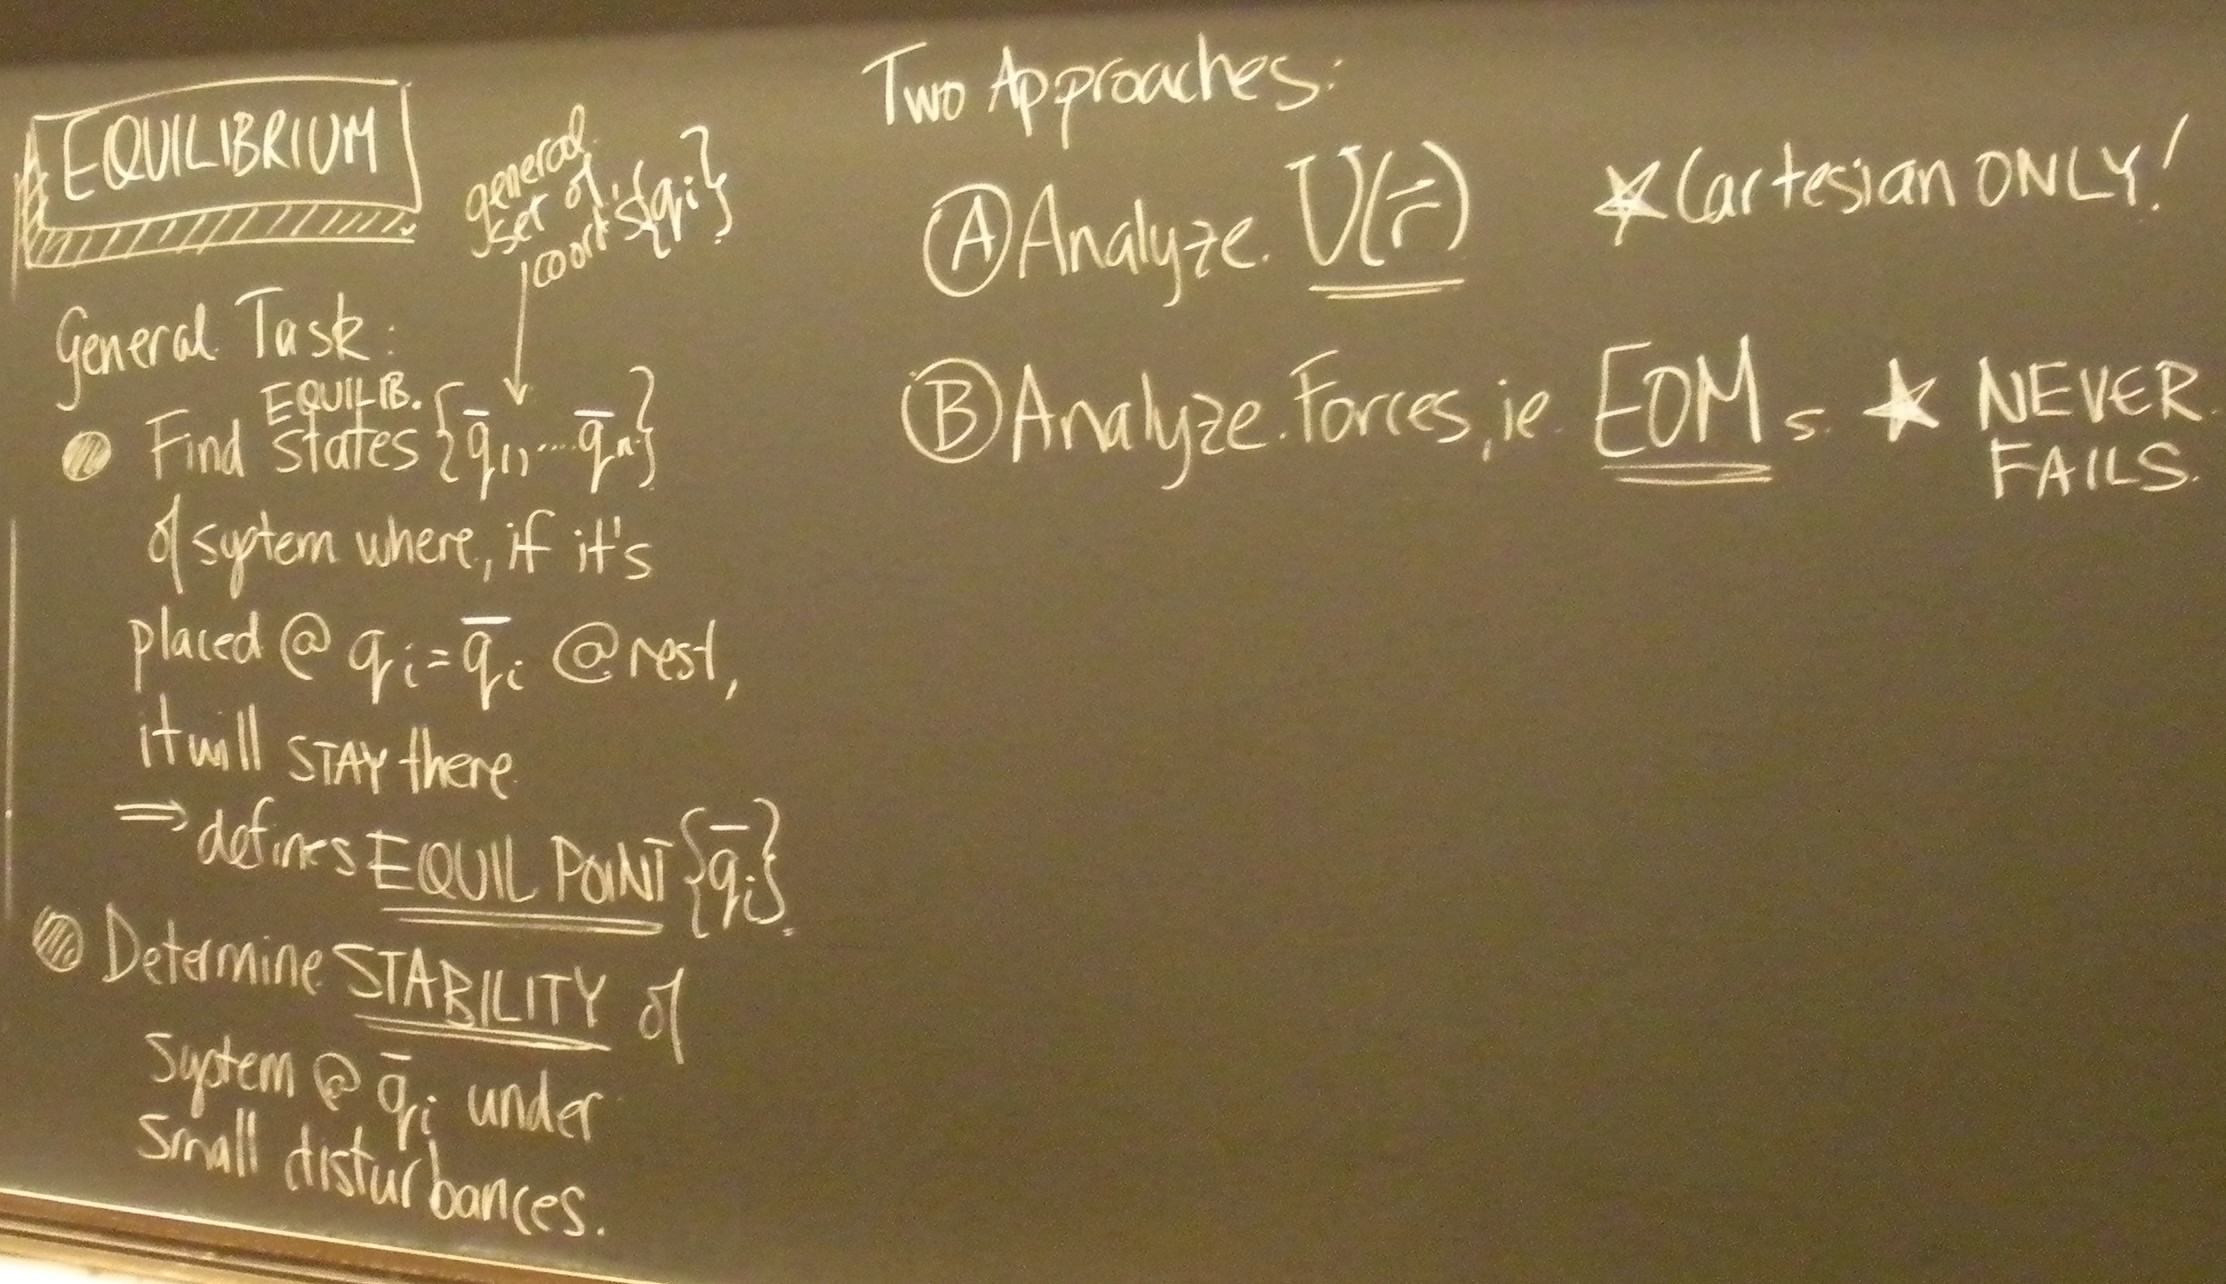 EQUILIBRIUM
general
set of
coords {qi}
General Task:
EQUILIB.
Find states {q̄1, ... q̄n}
of system where, if it's
placed @ qi = q̄i @ rest,
it will STAY there
⇒ defines EQUIL POINT {q̄i}.
Determine STABILITY of
system @ q̄i under
small disturbances.
Two Approaches:
Ⓐ Analyze U(r⃗) ★ Cartesian ONLY!
Ⓑ Analyze Forces, ie EOMs. ★ NEVER
FAILS.